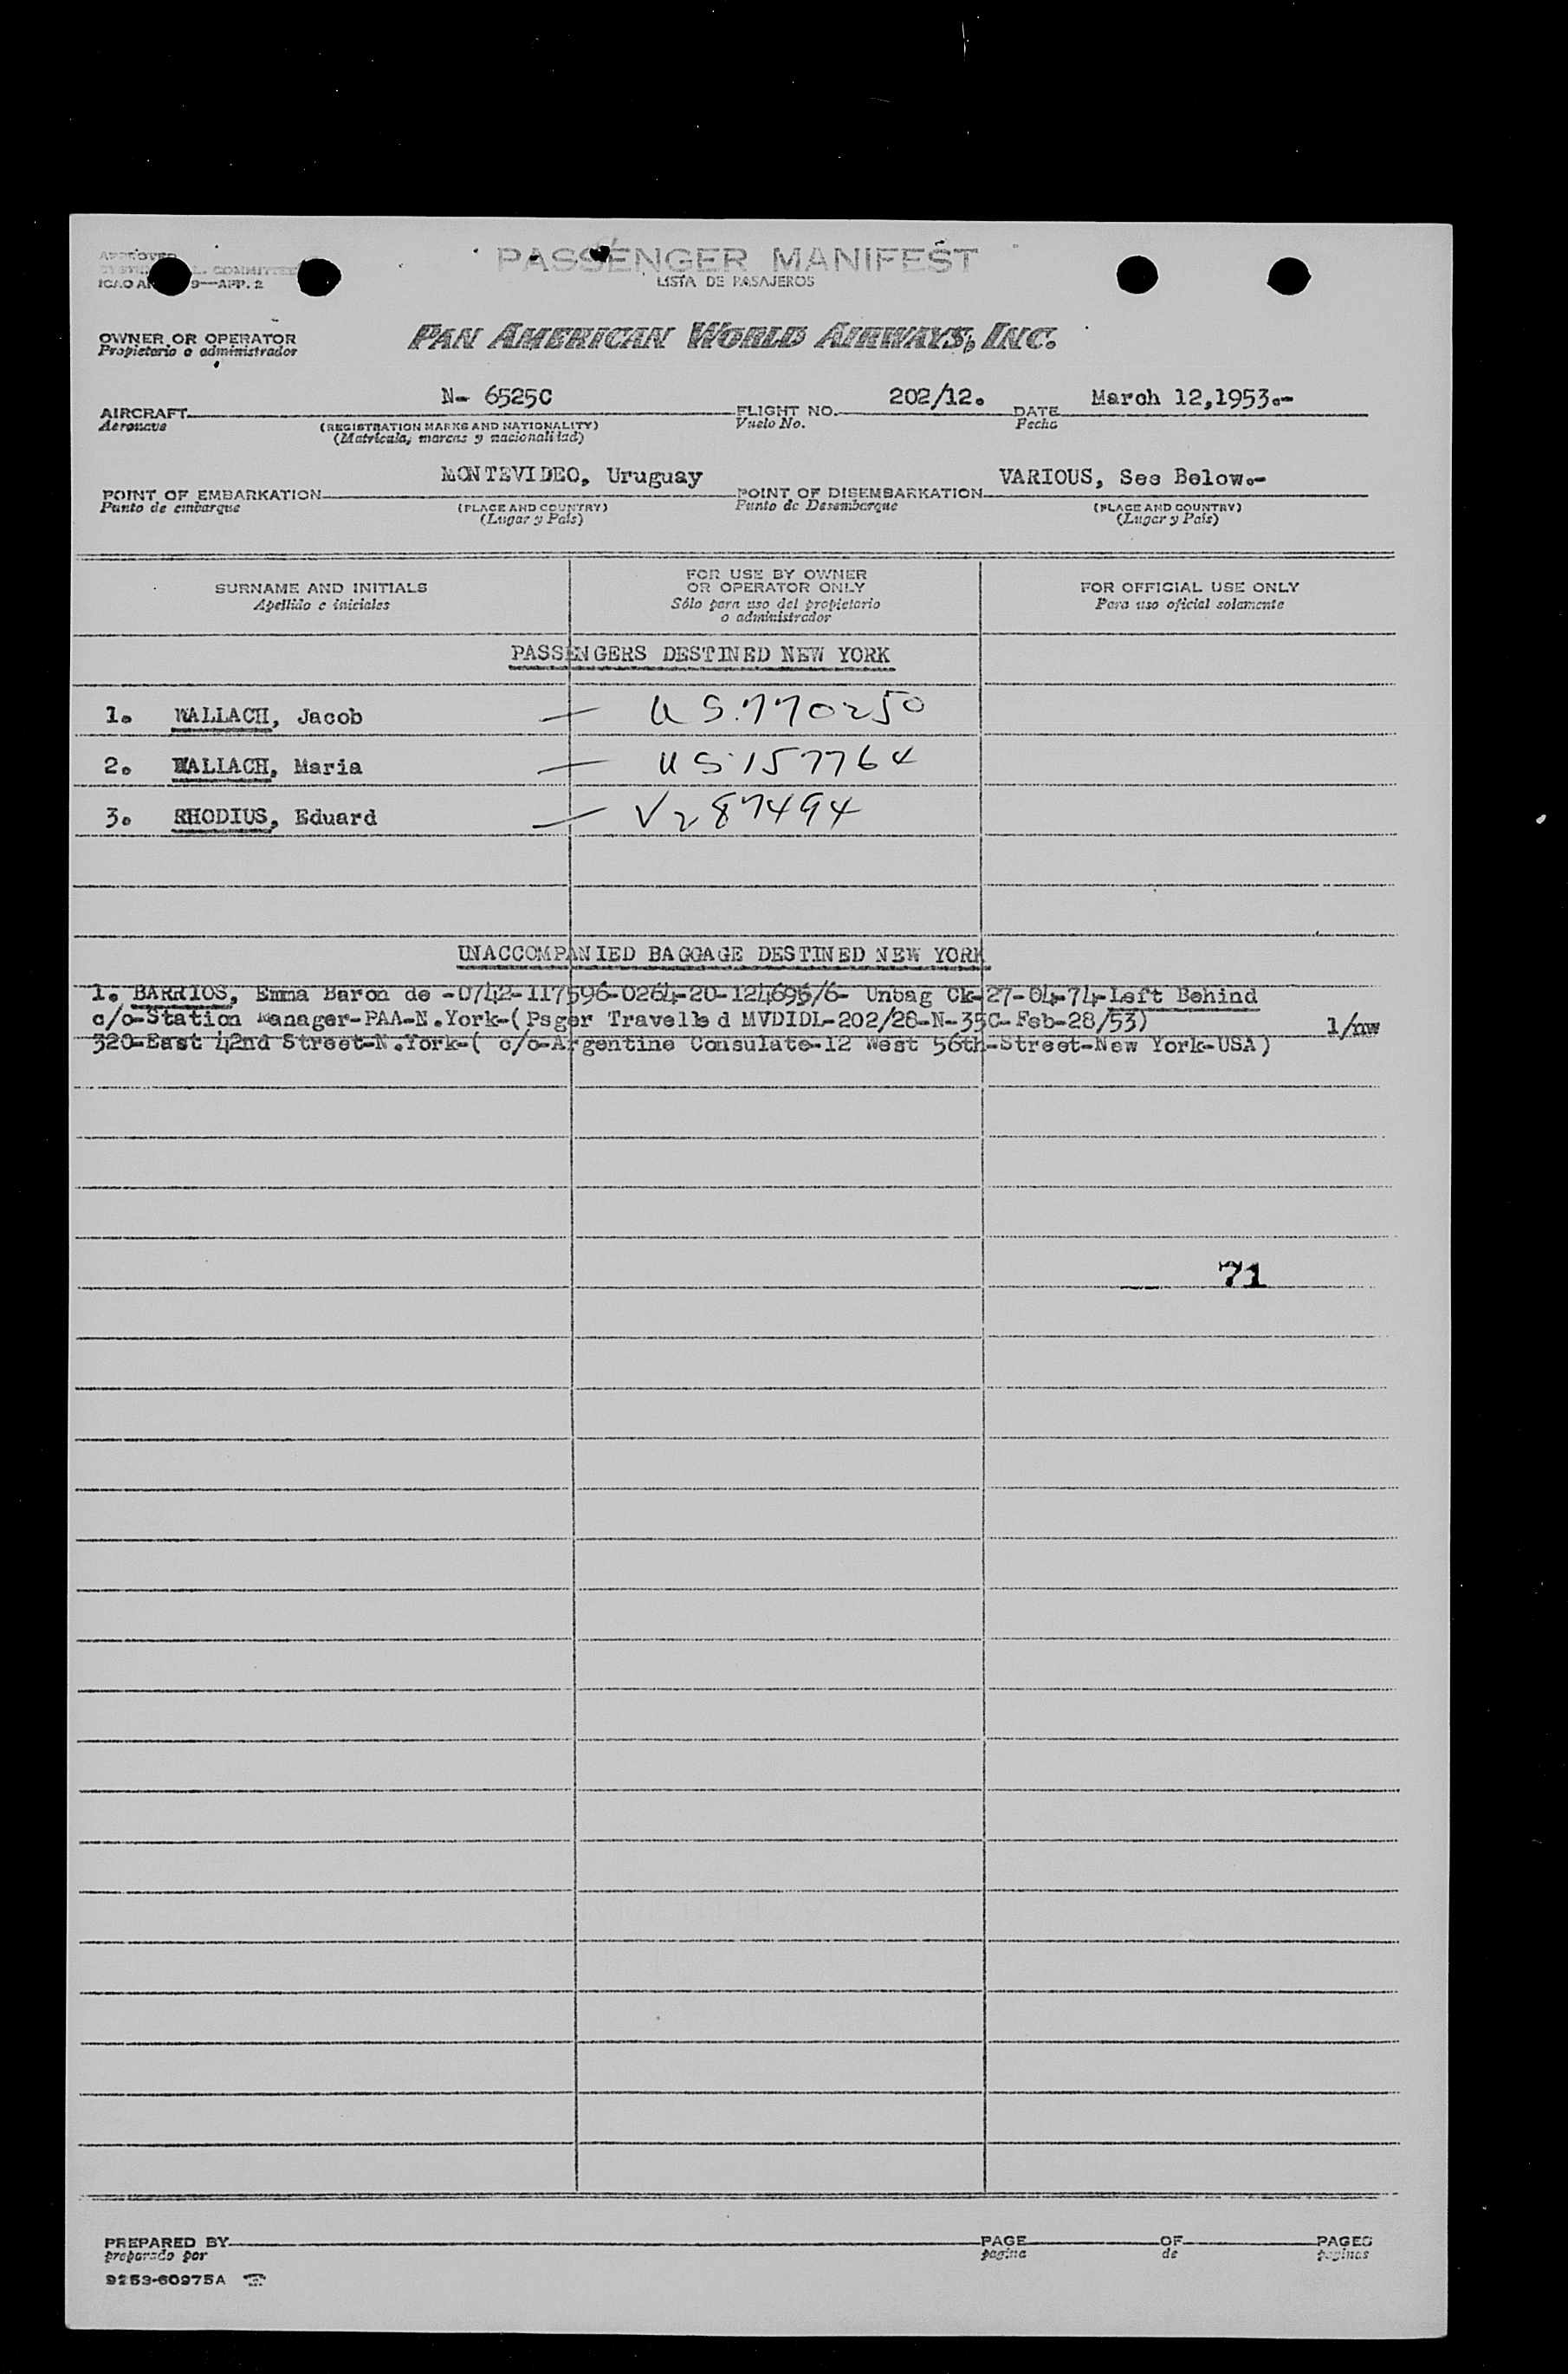 APPROVED
COMMITTEE
ICAO AN 9—APP. 2
PASSENGER MANIFEST
LISTA DE PASAJEROS
OWNER OR OPERATOR
Propietario o administrador
PAN AMERICAN WORLD AIRWAYS, INC.
AIRCRAFT N- 6525C FLIGHT NO. 202/12. DATE March 12,1953.-
Aeronave (REGISTRATION MARKS AND NATIONALITY) Vuelo No. Fecha
(Matrícula, marcas y nacionalidad)
POINT OF EMBARKATION MONTEVIDEO, Uruguay POINT OF DISEMBARKATION VARIOUS, See Below.-
Punto de embarque (PLACE AND COUNTRY) Punto de Desembarque (PLACE AND COUNTRY)
(Lugar y País) (Lugar y País)
SURNAME AND INITIALS
Apellido e iniciales
FOR USE BY OWNER
OR OPERATOR ONLY
Sólo para uso del propietario
o administrador
FOR OFFICIAL USE ONLY
Para uso oficial solamente
PASSENGERS DESTINED NEW YORK
1. WALLACH, Jacob — US.770250
2. WALLACH, Maria — US 157764
3. RHODIUS, Eduard — V287494
UNACCOMPANIED BAGGAGE DESTINED NEW YORK
1. BARRIOS, Emma Baron de -0742-117596-0264-20-124695/6- Unbag Ck-27-04-74-Left Behind
c/o-Station Manager-PAA-N.York-(Psger Travelled MVDIDL-202/28-N-35C-Feb-28/53) 1/nw
320-East 42nd Street-N.York-( c/o-Argentine Consulate-12 West 56th-Street-New York-USA)
71
PREPARED BY PAGE OF PAGES
preparado por pagina de paginas
9253-60975A